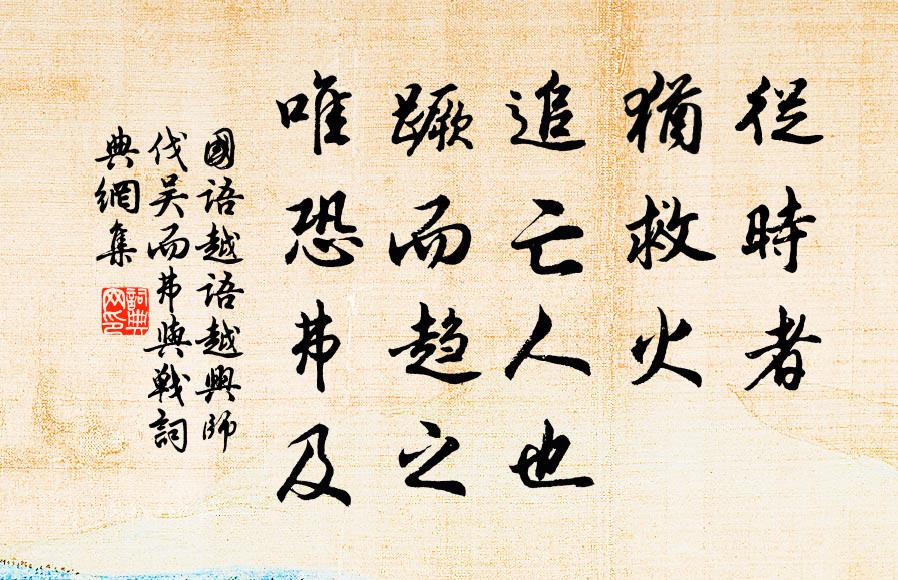 從時者
猶救火
追亡人也
蹶而趋之
唯恐弗及
國语越语越興師
伐吴而弗與戰詞
典網集
詞典网印